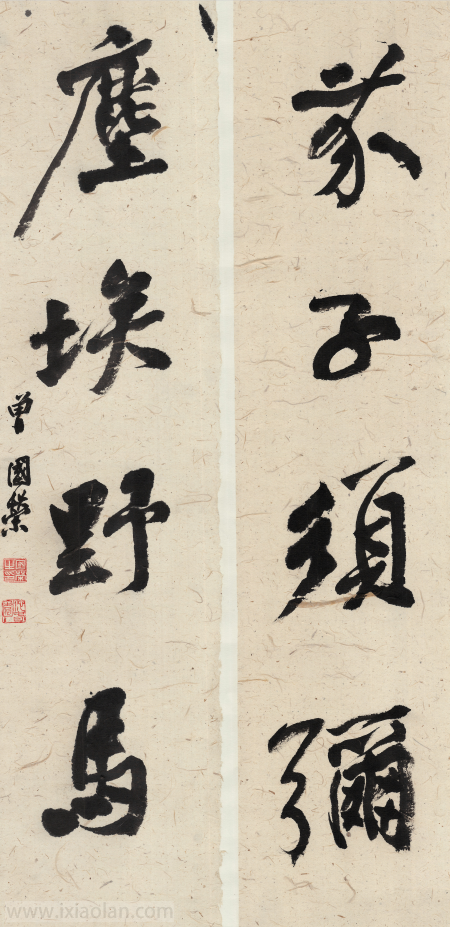 芥子須彌
塵埃野馬
曾國
www.ixiaolan.com